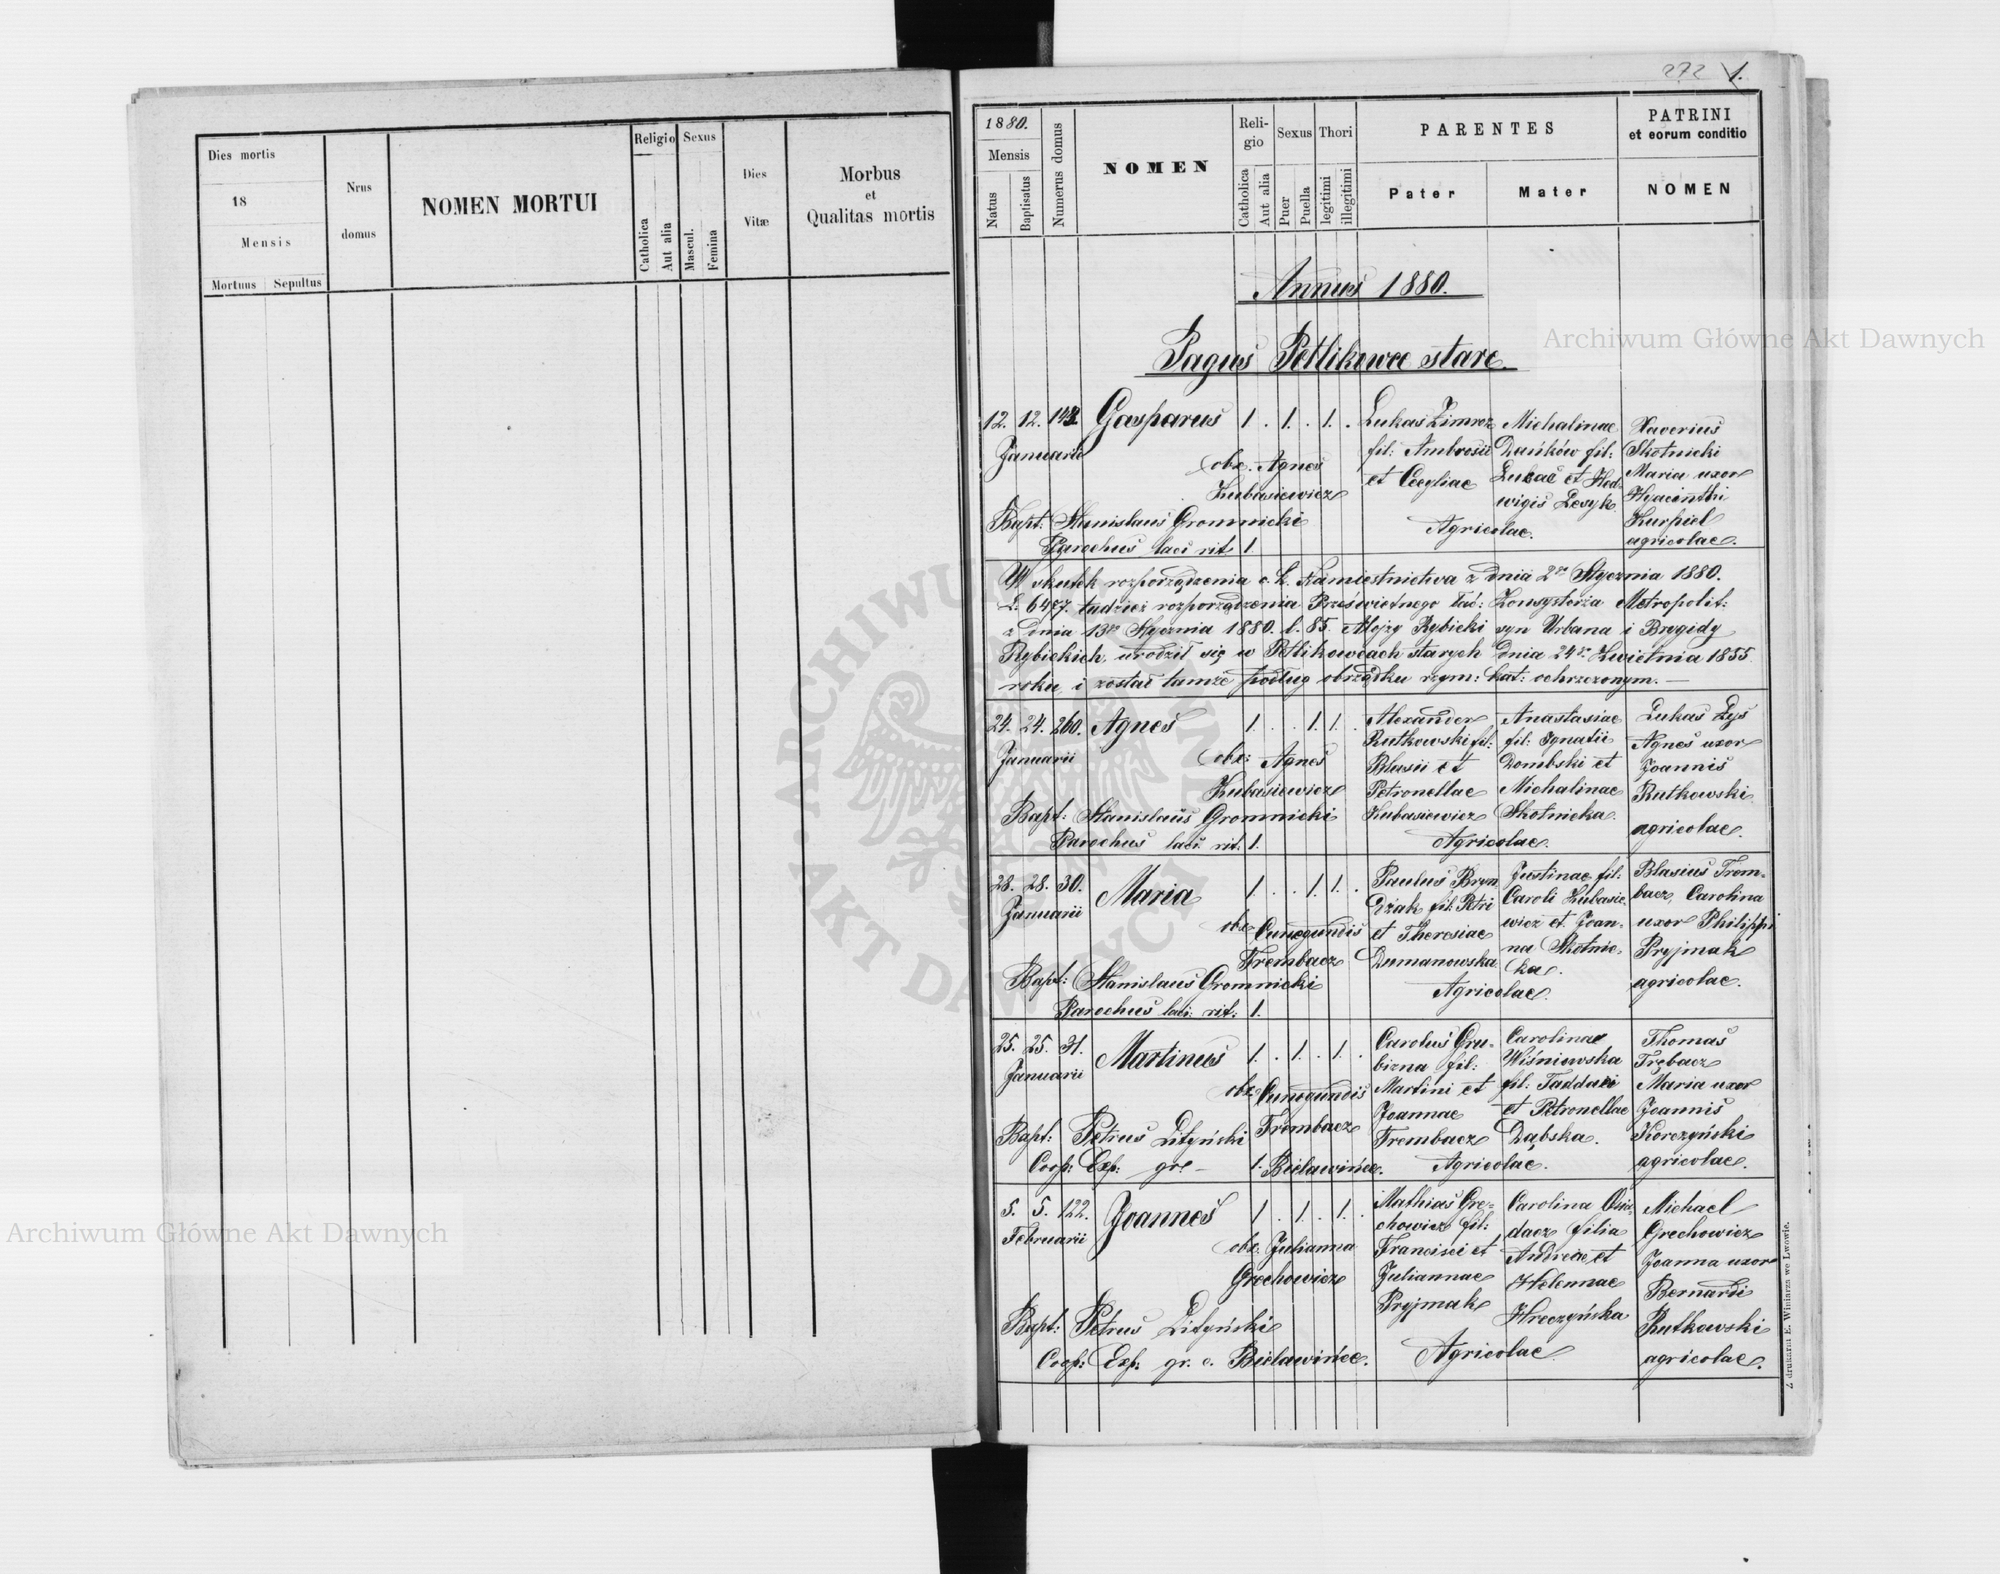 Dies mortis
18
Mensis
Mortuus
Sepultus
Nrus
domus
NOMEN MORTUI
Religio
Catholica
Aut alia
Sexus
Mascul.
Femina
Dies
Vitæ
Morbus
et
Qualitas mortis
272 1.
1880.
Mensis
Natus
Baptisatus
Numerus domus
NOMEN
Reli-
gio
Catholica
Aut alia
Sexus
Puer
Puella
Thori
legitimi
illegitimi
PARENTES
Pater
Mater
PATRINI
et eorum conditio
NOMEN
Annus 1880.
Pagus Petlikowce stare.
12. 12. 148. Gasparus 1. 1. 1.
Januarii
obs. Agnes
Kubasiewicz
Bapt: Stanislaus Gromnicki
Parochus laci rit. 1
Lukas Zimroz
fil: Ambrosii
et Cecyliae
Michalinae
Duńków fil:
Lucae et Hed-
wigis Lesyk
Agricolae.
Xaverius
Skotnicki
Maria uxor
Hyacinthi
Kurpiel
agricolae.
W skutek rozporządzenia c. k. Namiestnictwa z dnia 2go Stycznia 1880.
L. 6477. tudzież rozporządzenia Prześwietnego łać: Konsystorza Metropolit:
z dnia 13go Stycznia 1880. l. 85. Alojzy Rybicki syn Urbana i Brygidy
Rybickich, urodził się w Petlikowcach starych dnia 24go Kwietnia 1855
roku, i został tamże podług obrządku rzym: kat: ochrzczonym. —
24. 24. 260. Agnes 1. 1. 1.
Januarii
obs: Agnes
Kubasiewicz
Bapt: Stanislaus Gromnicki
Parochus laci. rit. 1.
Alexander
Rutkowski fil:
Blasii et
Petronellae
Kubasiewicz
Anastasiae
fil: Ignatii
Dombski et
Michalinae
Skotnicka.
Agricolae.
Lukas Lys
Agnes uxor
Joannis
Rutkowski
agricolae.
28. 28. 30. Maria 1. 1. 1.
Januarii
obs. Cunegundis
Trembacz
Bapt: Stanislaus Gromnicki
Parochus laci: rit: 1.
Paulus Bryn
dzak fil: Petri
et Theresiae
Dumanowska
Justinae fil:
Caroli Kubasie-
wicz et Joan-
na Skotnic-
ka.
Agricolae.
Blasius Trem-
bacz, Carolina
uxor Philippi
Pryjmak
agricolae.
25. 25. 31. Martinus 1. 1. 1.
Januarii
obs. Cunegundis
Trembacz
Bapt: Petrus Lityński
Coop: Exp: gr. 1. Bielawińce.
Carolus Gru-
bizna fil:
Martini et
Joannae
Trembacz
Carolinae
Wiśniewska
fil: Taddaei
et Petronellae
Dąbska.
Agricolae.
Thomas
Trębacz
Maria uxor
Joannis
Korczyński
agricolae.
5. 5. 122. Joannes 1. 1. 1.
Februarii
obs. Julianna
Grechowicz
Bapt: Petrus Lityński
Coop: Exp: gr. c. Bielawińce.
Mathias Gre-
chowicz fil:
Francisci et
Juliannae
Pryjmak
Carolina Osia-
dacz filia
Andreae et
Helennae
Hreczyńska
Agricolae.
Michael
Grechowicz
Joanna uxor
Bernardi
Rutkowski
agricolae.
Z drukarni E. Winiarza we Lwowie.
Archiwum Główne Akt Dawnych
Archiwum Główne Akt Dawnych
ARCHIWUM
AKT DAWNYCH